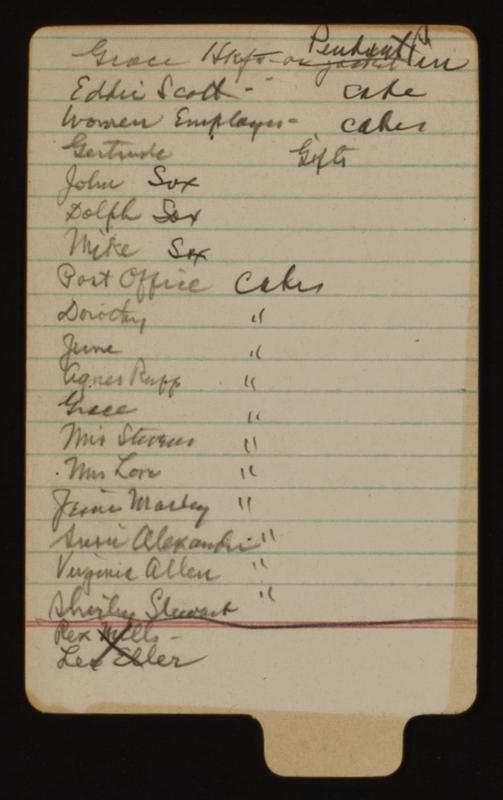 Grace Hkfs - or jacket Pendant Pin
Eddie Scott - cake
Women Employes - cakes
Gertrude Gifts
John Sox
Dolph Sox
Mike Sox
Post Office Cakes
Dorothy "
June "
Agnes Rupp "
Grace "
Mrs Stevens "
Mrs Love "
Jessie Marley "
Susie Alexander "
Virginia Allen "
Shirley Stewart "
Rex Mills -
Lee Eller